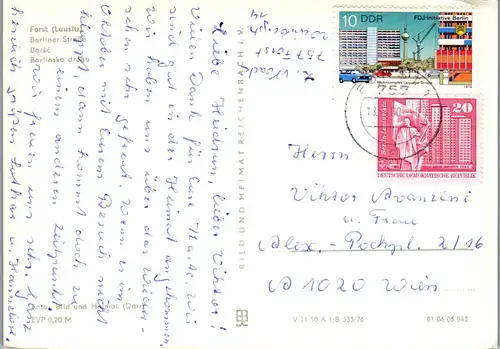 Forst (Lausitz)
Berliner Straße
Baršć
Barlinska droga
Liebe Heidrun, lieber Viktor!
Vielen Dank für Eure Karte. Wir
sind gut in der Heimat angekommen.
Wir haben uns über das Wieder-
sehn sehr gefreut. Wenn es im
Oktober mit Eurem Besuch nicht
klappt dann kommt doch zu
einem anderen Zeitpunkt.
Wir freuen uns sehr. Ganz
herzlich grüßen Lothar u. Hannelore
Foto: Bild und Heimat
EVP 0,20 M
BILD UND HEIMAT REICHENBACH
757 Forst
14
10 DDR FDJ-Initiative Berlin
757
20
DEUTSCHE DEMOKRATISCHE REPUBLIK
Herrn
Viktor Avanzini
u. Frau
Alex.-Pochpl. 2/16
A 1020 Wien
V 11 50 A 1/B 335/76
01 06 06 042